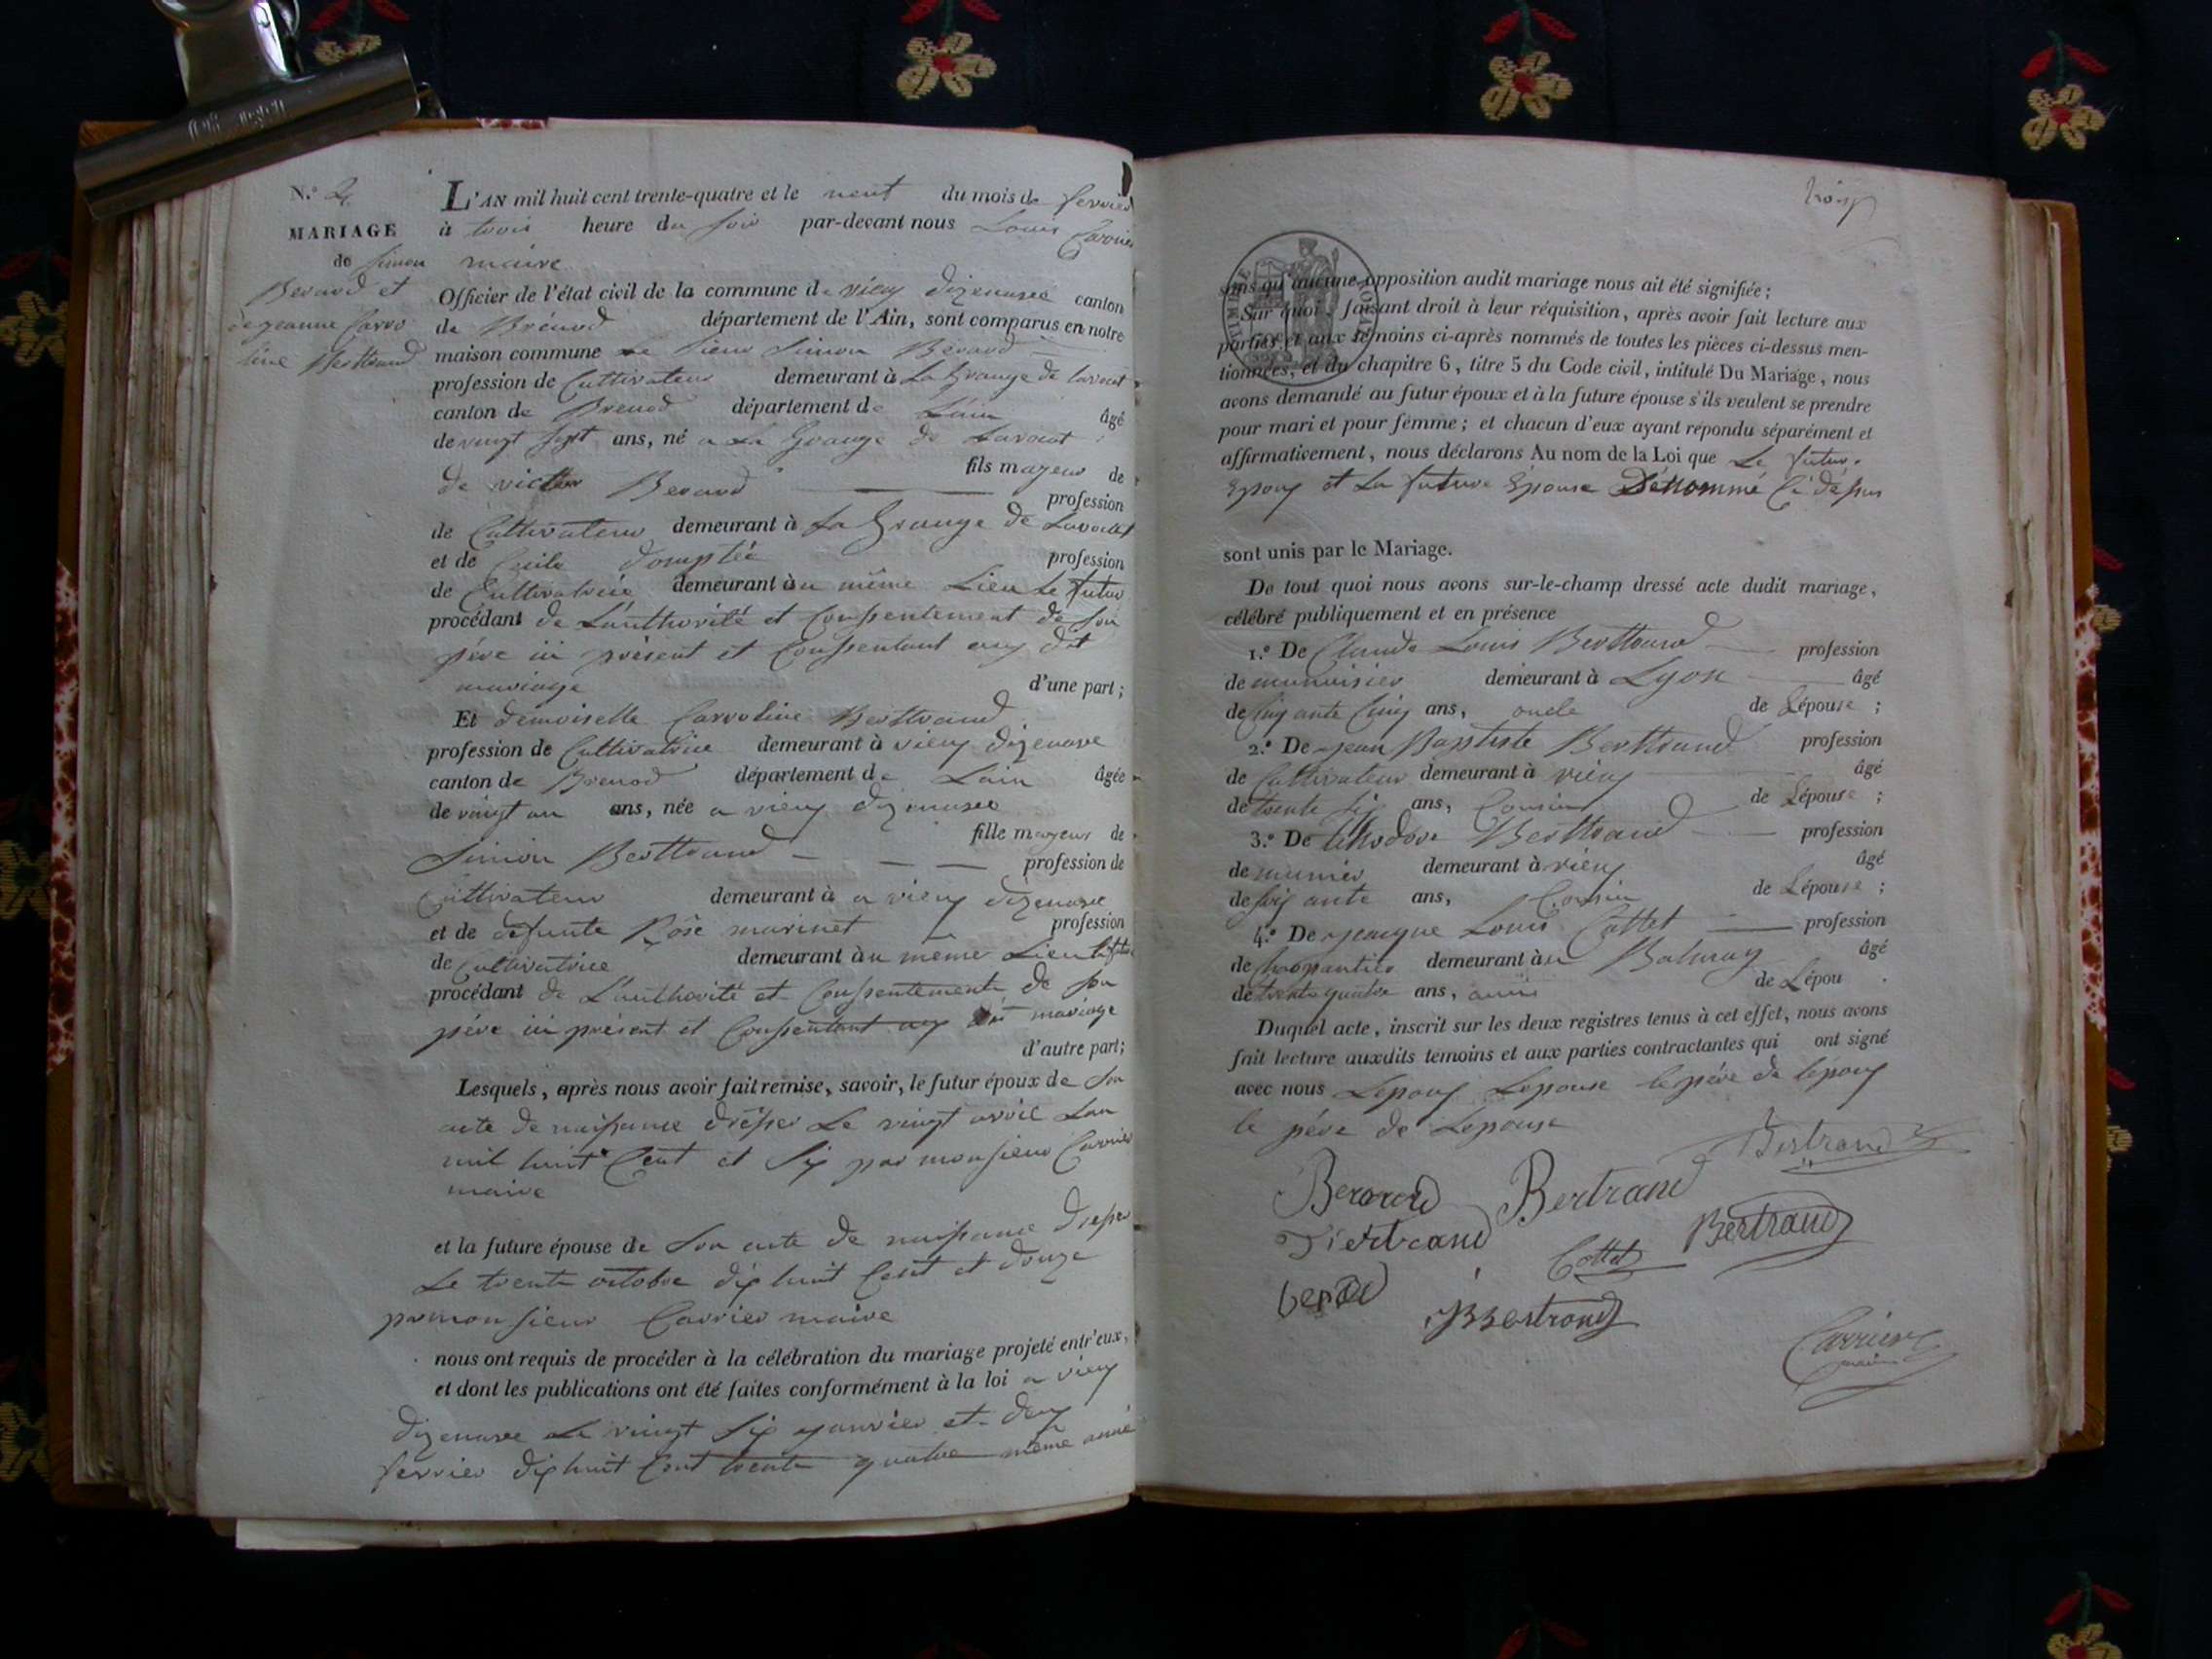 N.° 2
MARIAGE
de Simon
Berard et
de jeanne Carro
line Berttrand
L'AN mil huit cent trente-quatre et le neuf du mois de fevrier
à trois heure du soir par-devant nous Louis Carrier
maire
Officier de l'état civil de la commune de vieu dizenave canton
de Brénod département de l'Ain, sont comparus en notre
maison commune Le sieur Simon Berard
profession de Cultivateur demeurant à La Grange de Lavout
canton de Brenod département de L'ain âgé
de vingt sept ans, né a La Grange de Lavout
fils mayeur de
de victor Berard
profession
de Cultivateur demeurant à La Grange de Lavout
et de Cécile profession
de Cultivatrice demeurant àu même Lieu Le futur
procédant de L'authorité et Conssentement de son
père ici présent et Conssentant auy dit
mariage d'une part;
Et demoiselle Carroline Berttrand
profession de Cultivatrice demeurant à vieuy dizenave
canton de Brenod département de Lain âgée
de vingt un ans, née a vieuy dizenave
fille mayeur de
Simon Berttrand
profession de
Cultivateur demeurant à a vieuy dizenave
et de défunte Rôse marinet profession
de Cultivatrice demeurant àu même Lieu
procédant de L'authorité et Conssentement de son
père ici présent et Conssentant auy dit mariage
d'autre part;
Lesquels, après nous avoir fait remise, savoir, le futur époux de Son
acte de naissance dresser Le vingt avril Lan
mil huit Cent et Six par monsieur Carrier
maire
et la future épouse de Son acte de naissance dresser
Le trente octobre dix huit Cent et douze
par monsieur Carrier maire
nous ont requis de procéder à la célébration du mariage projeté entr'eux,
et dont les publications ont été faites conformément à la loi a vieuy
dizenave Le vingt Six janvier et deuy
fevrier dix huit Cent trente quatre même année
trois
TIMBRE ROYAL
sans qu'aucune opposition audit mariage nous ait été signifiée;
Sur quoi, faisant droit à leur réquisition, après avoir fait lecture aux
parties et aux témoins ci-après nommés de toutes les pièces ci-dessus men-
tionnées, et du chapitre 6, titre 5 du Code civil, intitulé Du Mariage, nous
avons demandé au futur époux et à la future épouse s'ils veulent se prendre
pour mari et pour femme; et chacun d'eux ayant répondu séparément et
affirmativement, nous déclarons Au nom de la Loi que Le futur
Epouy et La future Epouse Dénommé Ci dessus
sont unis par le Mariage.
De tout quoi nous avons sur-le-champ dressé acte dudit mariage,
célébré publiquement et en présence
1.° De Claude Louis Berttrand profession
de menuisier demeurant à Lyon âgé
de Cinq ante Cinq ans, oncle de Lépouse;
2.° De jean Baptiste Berttrand profession
de Cultivateur demeurant à vieuy âgé
de trente Six ans, Cousin de Lépouse;
3.° De théodore Berttrand profession
de munier demeurant à vieuy âgé
de soix ante ans, Cousin de Lépouse;
4.° De jacque Louis Cottet profession
de charpantier demeurant àu Balmay âgé
de trente quatre ans, amis de Lépou
Duquel acte, inscrit sur les deux registres tenus à cet effet, nous avons
fait lecture auxdits témoins et aux parties contractantes qui ont signé
avec nous Lepouy Lepouse le père de lépouy
le père de Lepouse
Bertrand
Berard Bertrand
Bertrand Bertrand
Cottet
berard
JB Bertrand
Carrier
maire